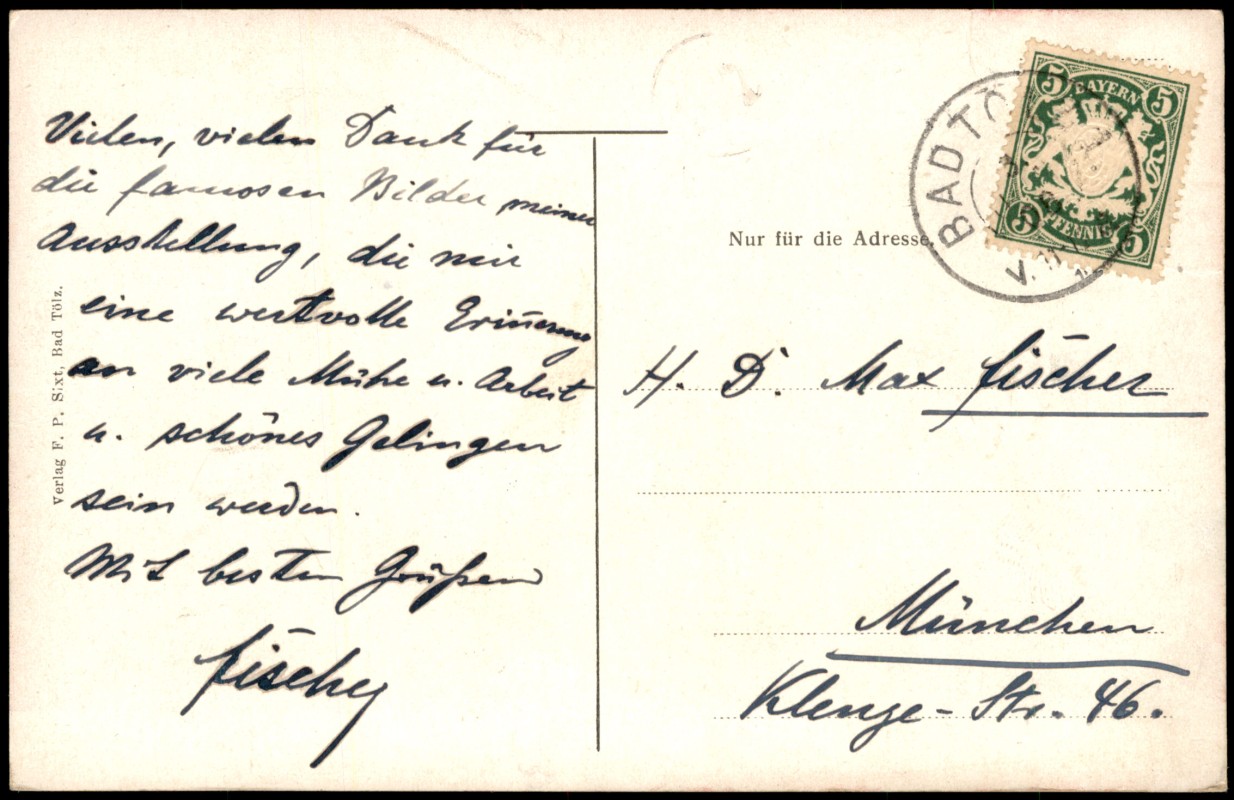 Vielen, vielen Dank für
die famosen Bilder meiner
Ausstellung, die mir
eine wertvolle Erinnerung
an viele Mühe u. Arbeit
u. schönes Gelingen
sein werden.
Mit besten Grüßen
Fischer
Verlag F. P. Sixt, Bad Tölz.
BAD TÖ
BAYERN
5 5
5 5
PFENNIG
Nur für die Adresse.
H. D. Max Fischer
München
Klenze-Str. 46.